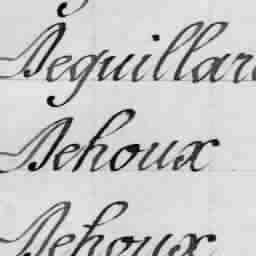 Deguillar
Dehoux
Dehoux